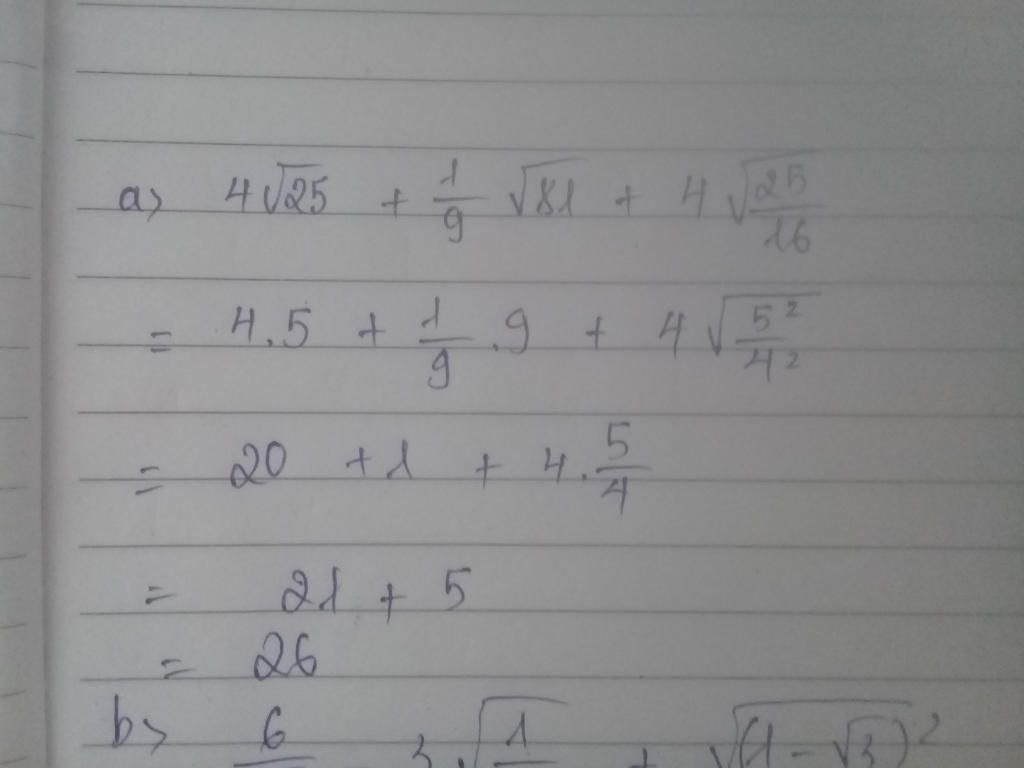 a> 4√25 + 1/9 √81 + 4√(25/16)
= 4.5 + 1/9 .9 + 4√(5²/4²)
= 20 + 1 + 4. 5/4
= 21 + 5
= 26
b> 6 3.√1 + √(1-√3)²